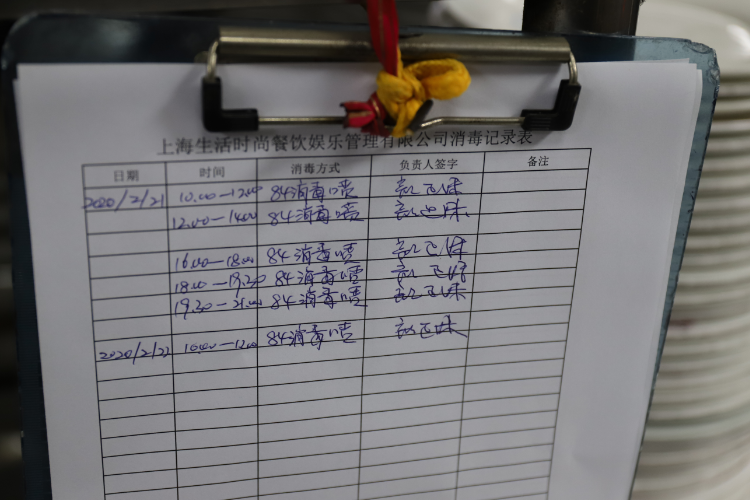 上海生活时尚餐饮娱乐管理有限公司消毒记录表
日期 时间 消毒方式 负责人签字 备注
2020/2/21 10.00—12.00 84消毒喷
12.00—14.00 84消毒喷
16.00—18.00 84消毒喷
18.00—19.30 84消毒喷
19.30—21.00 84消毒喷
2020/2/22 10.00—12.00 84消毒喷